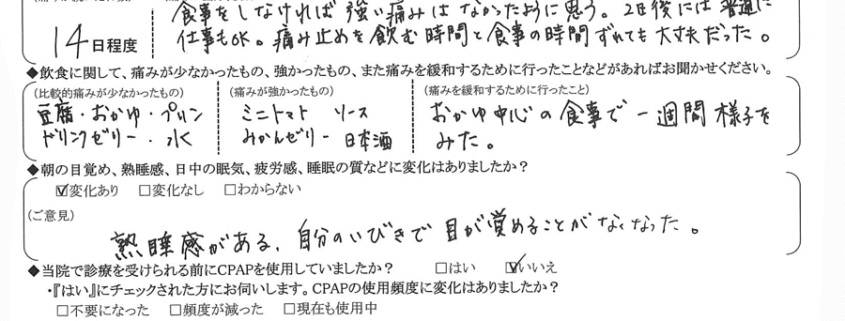 食事をしなければ強い痛みはなかったように思う。2日後には普通に
14日程度
仕事もOK。痛み止めを飲む時間と食事の時間ずれても大丈夫だった。
◆飲食に関して、痛みが少なかったもの、強かったもの、また痛みを緩和するために行ったことなどがあればお聞かせください。
(比較的痛みが少なかったもの)
豆腐・おかゆ・プリン
ドリンクゼリー・水
(痛みが強かったもの)
ミニトマト ソース
みかんゼリー 日本酒
(痛みを緩和するために行ったこと)
おかゆ中心の食事で一週間様子を
みた。
◆朝の目覚め、熟睡感、日中の眠気、疲労感、睡眠の質などに変化はありましたか?
☑変化あり □変化なし □わからない
(ご意見)
熟睡感がある。自分のいびきで目が覚めることがなくなった。
◆当院で診療を受けられる前にCPAPを使用していましたか? □はい ☑いいえ
・『はい』にチェックされた方にお伺いします。CPAPの使用頻度に変化はありましたか?
□不要になった □頻度が減った □現在も使用中